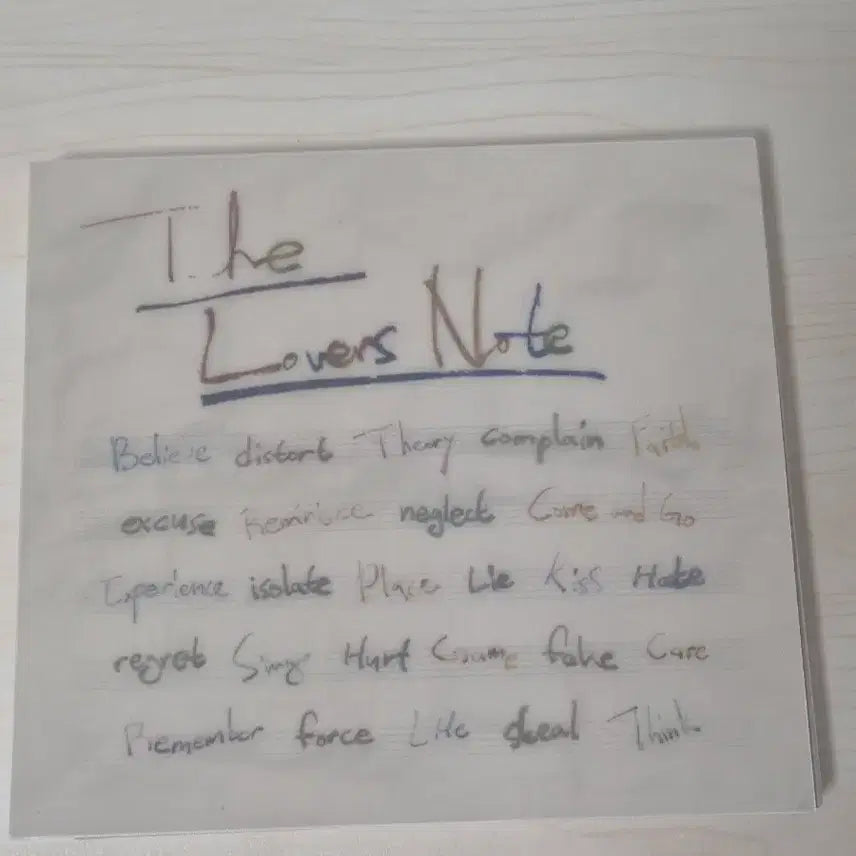 The
Lovers Note
Believe distort Theory complain Faith
excuse Reminisce neglect Come and Go
Experience isolate Place Lie Kiss Hate
regret Sing Hurt fake Care
Remember force steal Think